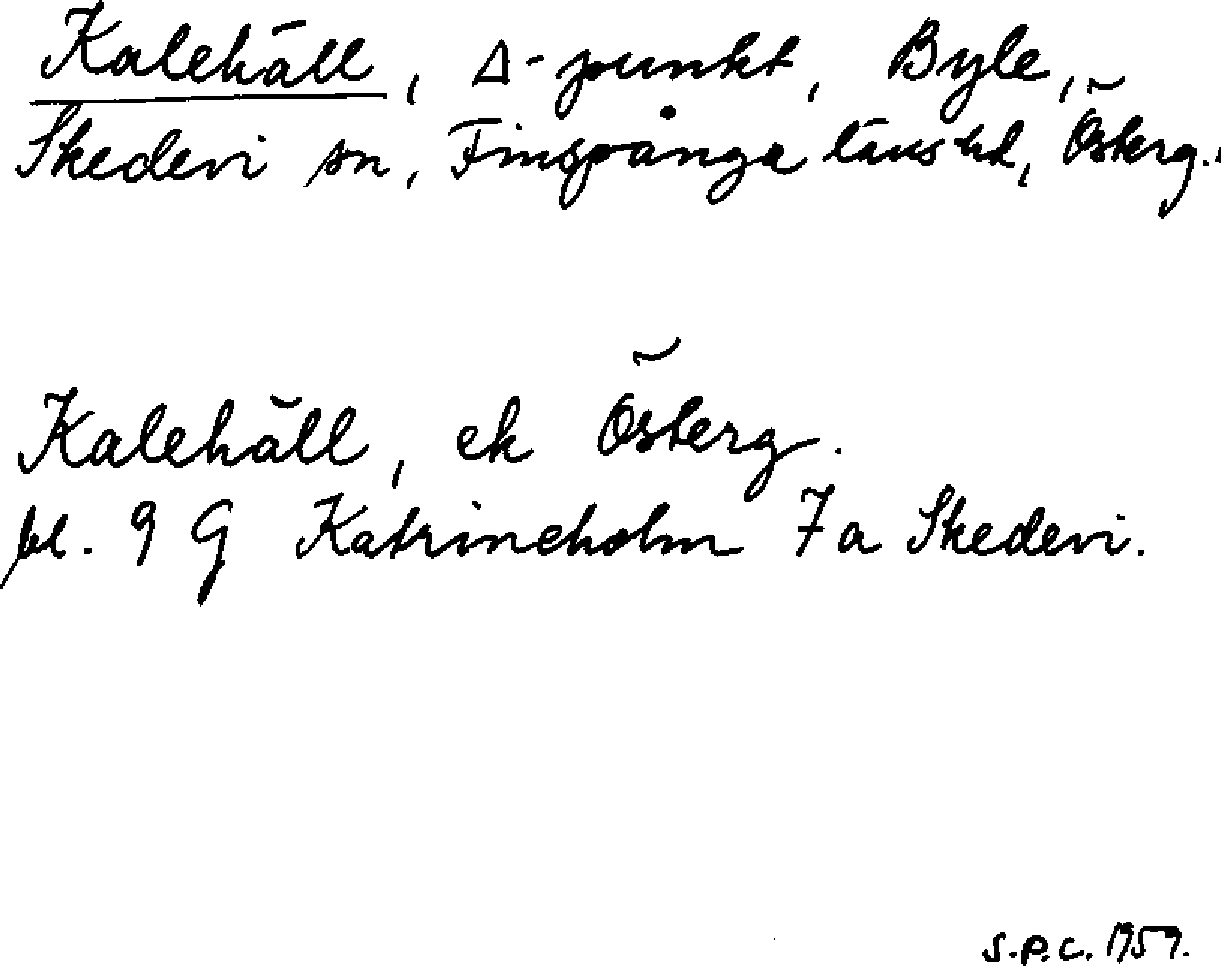 Kalehäll, Δ-punkt, Byle,
Skedevi sn, Finspånga läns hd, Österg.
Kalehäll, ek Österg.
bl. 9 G Katrineholm 7a Skedevi.
S.P.C. 1959.